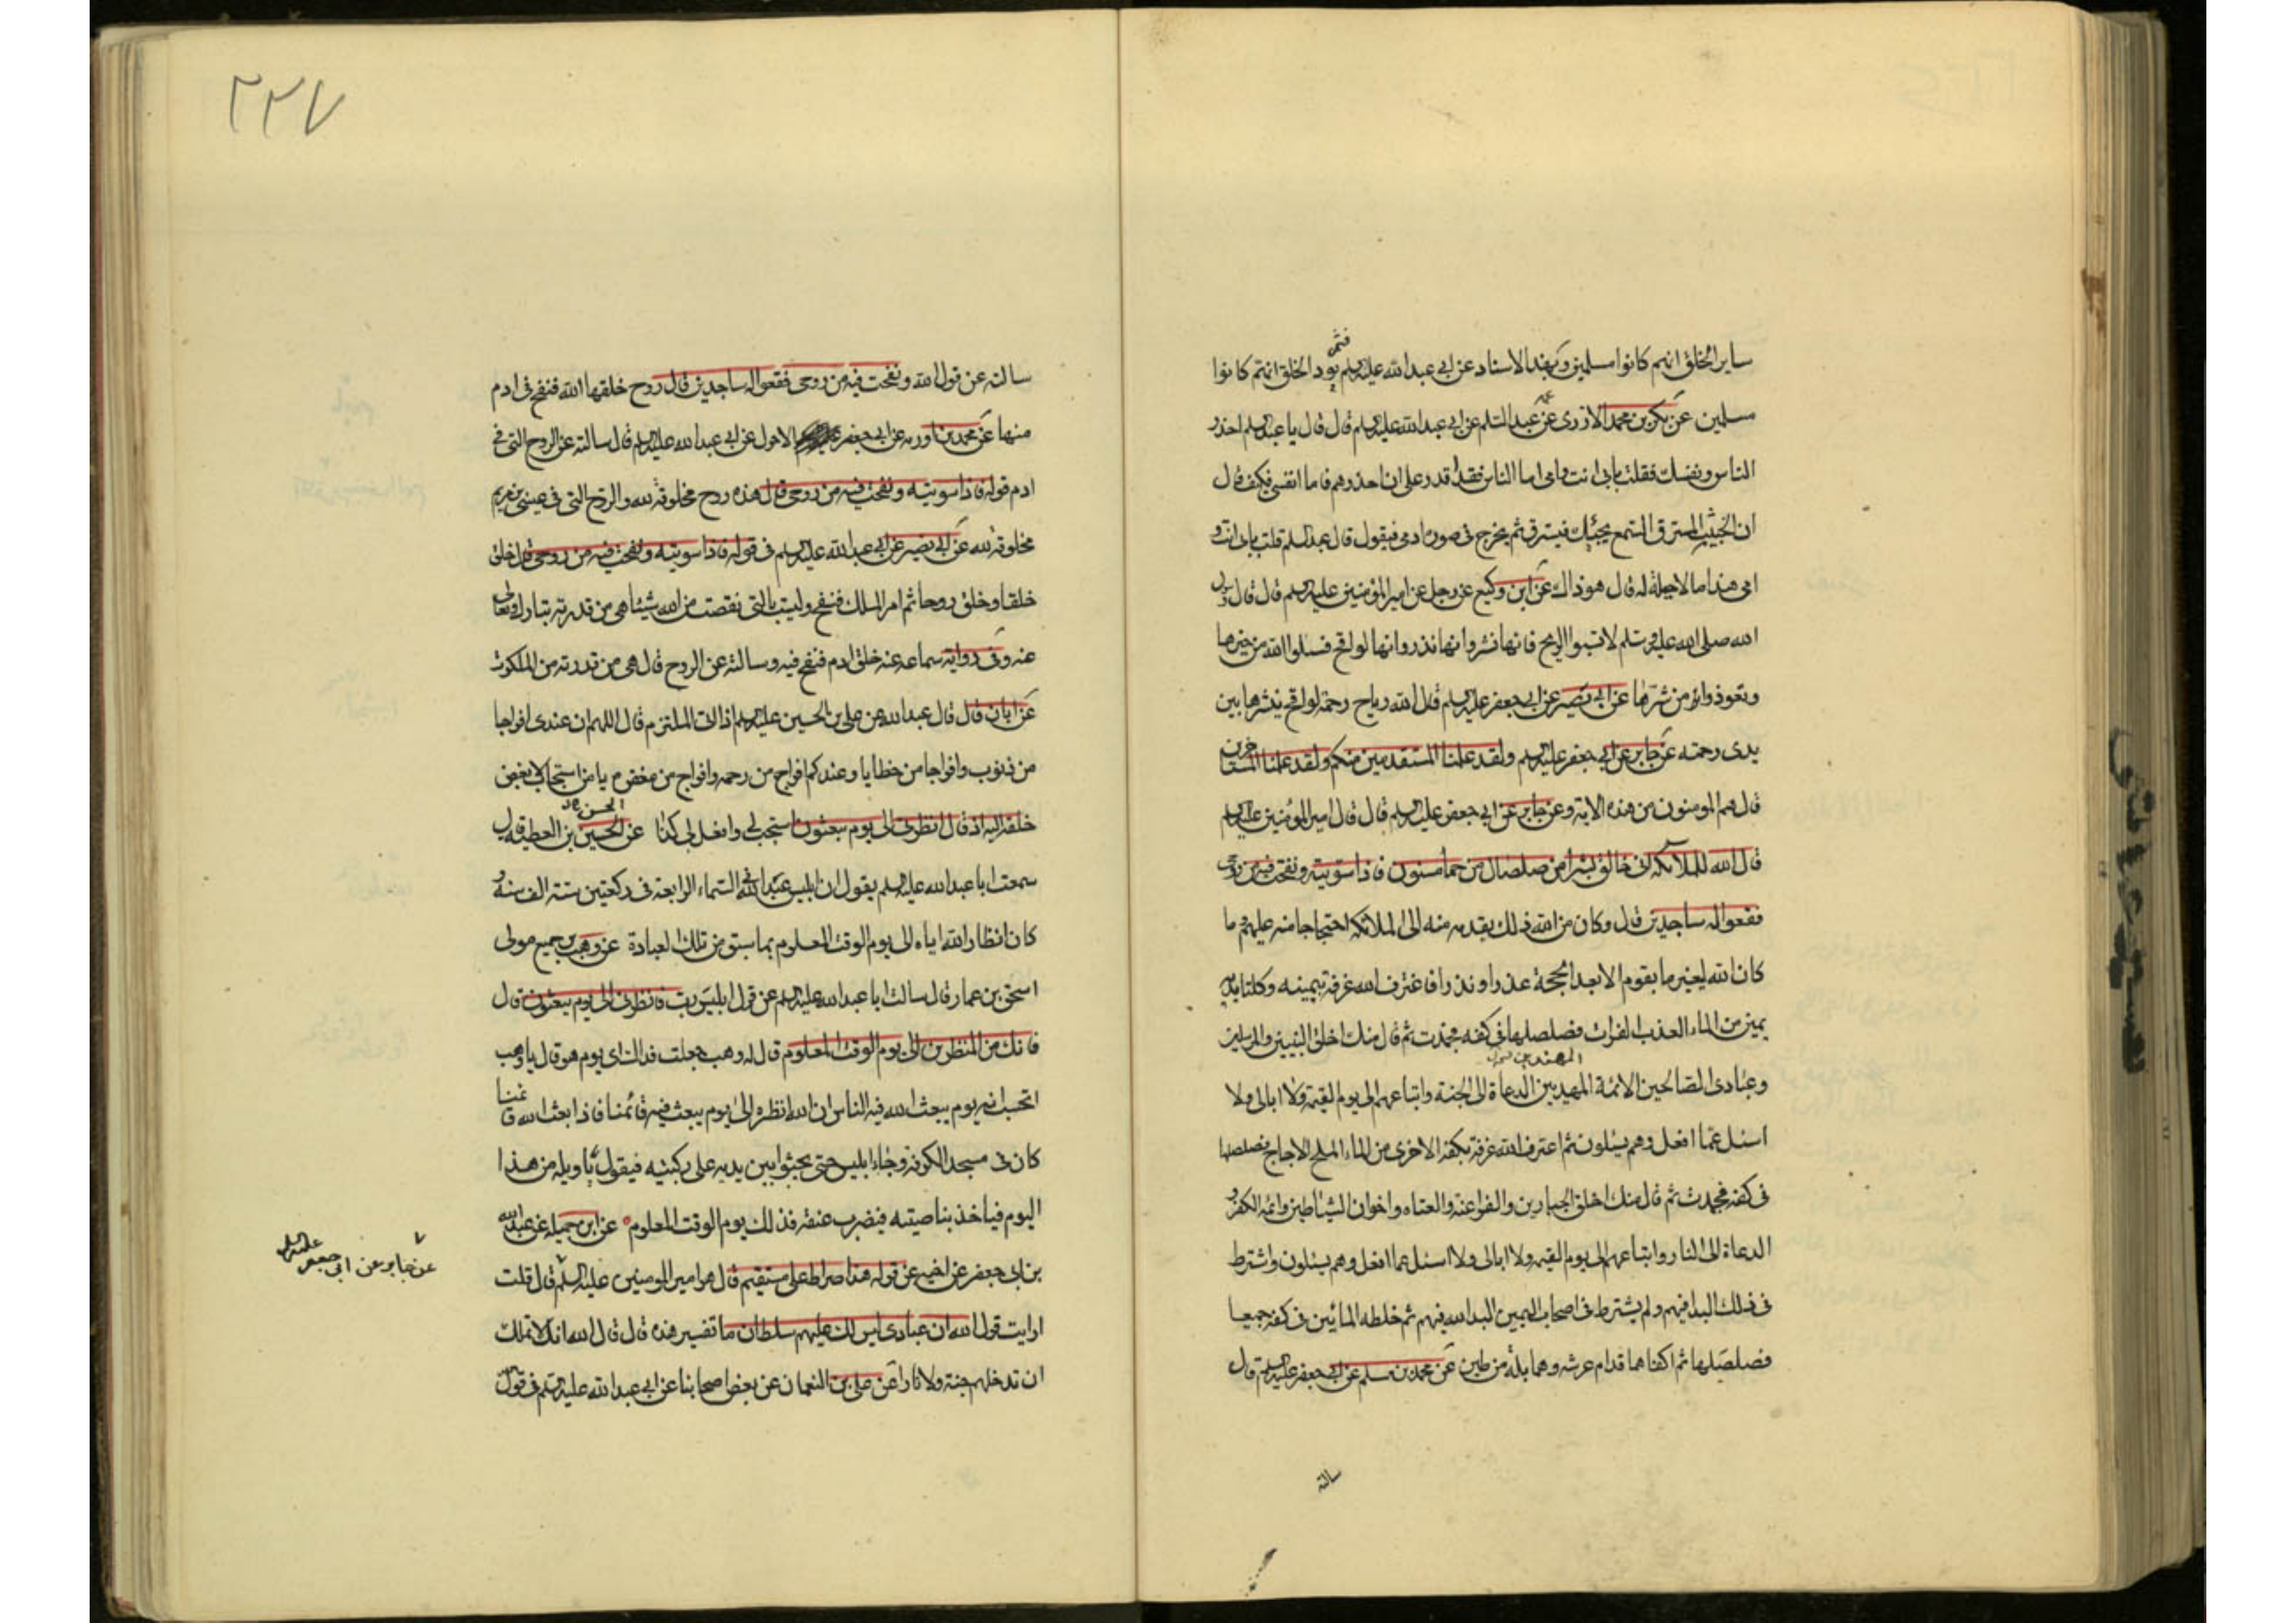 ساير الخلق انهم كانوا مسلمين وبهذا الاسناد عن ابى عبد الله عليه السلم ثم يود الخلق انهم كانوا
مسلمين عن بكر بن محمد الازدى عن عمه عبد السلم عن ابى عبد الله عليه السلم قال قال يا عبد السلم احذر
الناس ونفسك فقلت بابى انت وامى اما الناس فقد اقدر على ان احذرهم فاما نفسى فكيف قال
ان الخبيث المسترق السمع يجيئك فيسترق ثم يخرج فى صورة ادمى فيقول قال عبد السلم قلت بابى انت و
امى هذا ما لا حيلة له قال هو ذاك عن ابن وكيع عن رجل عن امير المؤمنين عليه السلم قال قال رسول
الله صلى الله عليه وسلم لا تسبوا الريح فانها بشر وانها نذر وانها لواقح فسلوا الله من خيرها
وتعوذوا به من شرها عن ابى بصير عن ابى جعفر عليه السلم قال لله رياح رحمة لواقح ينشرها بين
يدى رحمته عن جابر عن ابى جعفر عليه السلم ولقد علمنا المستقدمين منكم ولقد علمنا المستاخرين
قال هم المومنون من هذه الاية وعن جابر عن ابى جعفر عليه السلم قال قال امير المؤمنين عليه السلم
قال الله للملائكة انى خالق بشرا من صلصال من حما مسنون فاذا سويته ونفخت فيه من روحى
فقعوا له ساجدين قال وكان من الله ذلك تقدمه منه الى الملائكة احتجاجا منه عليهم وما
كان الله ليغير ما بقوم الا بعد الحجة عذرا او نذرا فاغترف الله غرفة بيمينه وكلتا يديه
يمين من الماء العذب الفرات فصلصلها فى كفه فجمدت ثم قال منك اخلق النبيين والمرسلين
وعبادى الصالحين الائمة المهديين الدعاة الى الجنة واتباعهم الى يوم القيمة ولا ابالى ولا
اسئل عما افعل وهم يسئلون ثم اغترف الله غرفة بكفه الاخرى من الماء الملح الاجاج فصلصلها
فى كفه فجمدت ثم قال منك اخلق الجبارين والفراعنة والعتاه واخوان الشياطين وائمة الكفر و
الدعاة الى النار واتباعهم الى يوم القيمة ولا ابالى ولا اسئل عما افعل وهم يسئلون واشترط
فى ذلك البدا فيهم ولم يشترط فى اصحاب اليمين البدا لله فيهم ثم خلط المائين فى كفه جميعا
فصلصلها ثم اكفاهما قدام عرشه وهما بلة من طين عن محمد بن مسلم عن ابى جعفر عليه السلم قال
سالته
٢٢٧
سالته عن قول الله ونفخت فيه من روحى فقعوا له ساجدين قال روح خلقها الله فنفخ فى ادم
منها عن محمد بن اورمه عن ابى جعفر الاحول عن ابى عبد الله عليه السلم قال سالته عن الروح التى فى
ادم قوله فاذا سويته ونفخت فيه من روحى قال هذه روح مخلوقة لله والروح التى فى عيسى بن مريم
مخلوقة لله عن ابى بصير عن ابى عبد الله عليه السلم فى قوله فاذا سويته ونفخت فيه من روحى قال خلق
خلقا وخلق روحا ثم امر الملك فنفخ وليست بالتى نقصت من الله شيئا هى من قدرته تبارك وتعالى
عنه وفى رواية سماعه عنه خلق ادم فنفخ فيه وسالته عن الروح قال هى من قدرته من الملكوت
عن ابان قال قال عبد الله عن على بن الحسين عليه السلم اذا اتى الملتزم قال اللهم ان عندى افواجا
من ذنوب وافواجا من خطايا وعندكم افواج من رحمه وافواج من مغفره يا من استجاب لابغض
خلقه اليه اذ قال انظرنى الى يوم يبعثون استجب لى وافعل لى كذا عن الحسين بن العطيه قال
سمعت ابا عبد الله عليه السلم يقول ان ابليس عبد الله فى السماء الرابعة فى ركعتين ستة الف سنة و
كان انظار الله اياه الى يوم الوقت المعلوم بما سبق من تلك العبادة عن وهب بن جميع مولى
اسحق بن عمار قال سالت ابا عبد الله عليه السلم عن قول ابليس رب فانظرنى الى يوم يبعثون قال
فانك من المنظرين الى يوم الوقت المعلوم قال له وهب جعلت فداك اى يوم هو قال يا وهب
اتحسب انه يوم يبعث الله فيه الناس ان الله انظره الى يوم يبعث فيه قائمنا فاذا بعث الله قائمنا
كان فى مسجد الكوفة وجاء ابليس حتى يجثوا بين يديه على ركبتيه فيقول يا ويله من هذا
اليوم فياخذ بناصيته فيضرب عنقه فذلك يوم الوقت المعلوم عن ابن جميله عن عبد الله
بن ابى جعفر عن اخيه عن قوله هذا صراط على مستقيم قال هو امير المومنين عليه السلم قال قلت
عن جابر عن ابى جعفر عليه السلم
ارايت قول الله ان عبادى ليس لك عليهم سلطان ما تفسير هذه قال قال الله انك لا تملك
ان تدخلهم جنة ولا نارا عن على بن النعمان عن بعض اصحابنا عن ابى عبد الله عليه السلم فى قول